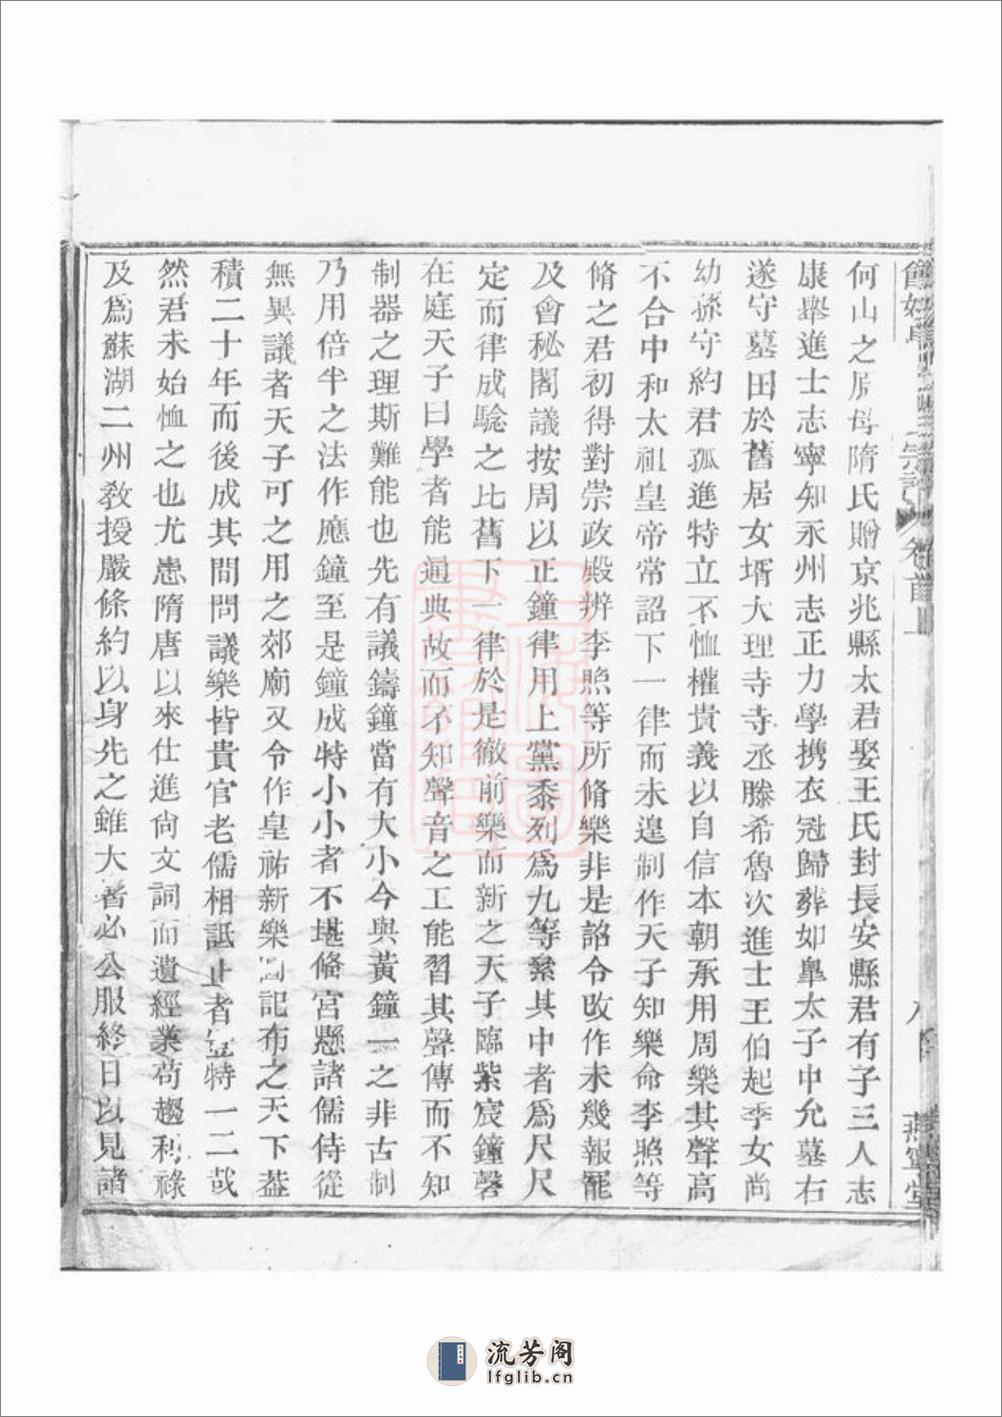 何山之原母隋氏贈京兆縣太君娶王氏封長安縣君有子三人志
康舉進士志寧知永州志正力學携衣冠歸葬如臯太子中允墓右
遂守墓田於舊居女壻大理寺寺丞滕希魯次進士王伯起季女尚
幼孫守約君孤進特立不恤權貴義以自信本朝承用周樂其聲高
不合中和太祖皇帝常詔下一律而未遑制作天子知樂命李照等
脩之君初得對崇政殿辨李照等所脩樂非是詔令改作未幾報罷
及會秘閣議按周以正鐘律用上黨黍列爲九等絫其中者爲尺尺
定而律成騐之比舊下一律於是徹前樂而新之天子臨紫宸鐘磬
在庭天子曰學者能通典故而不知聲音之工能習其聲傳而不知
制器之理斯難能也先有議鑄鐘當有大小今與黃鐘一之非古制
乃用倍半之法作應鐘至是鐘成特小小者不堪脩宮懸諸儒侍從
無異議者天子可之用之郊廟又令作皇祐新樂圖記布之天下葢
積二十年而後成其問問議樂皆貴官老儒相詆止者豈特一二哉
然君未始恤之也尤患隋唐以來仕進尙文詞而遺經業苟趨利祿
及爲蘇湖二州敎授嚴條約以身先之雖大暑必公服終日以見諸
宗譜 卷首一 八 燕寧堂
流芳阁
lfglib.cn